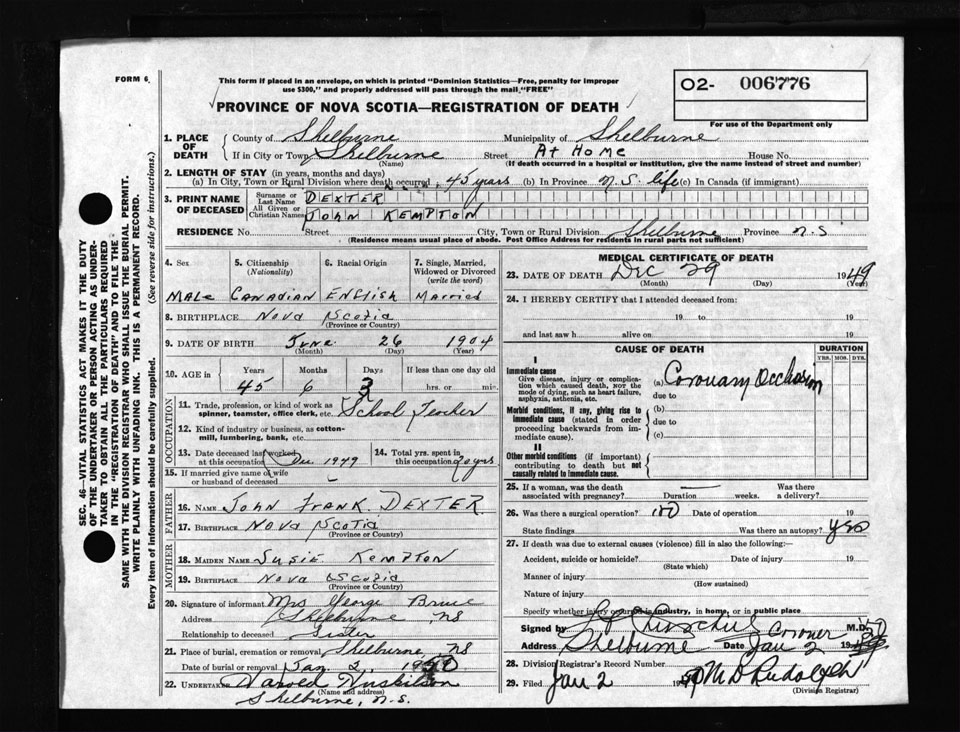 FORM 6.
This form if placed in an envelope, on which is printed "Dominion Statistics—Free, penalty for improper
use $300," and properly addressed will pass through the mail "FREE"
PROVINCE OF NOVA SCOTIA—REGISTRATION OF DEATH
02- 006776
For use of the Department only
1. PLACE OF DEATH
County of Shelburne Municipality of Shelburne
If in City or Town Shelburne Street At Home House No.
(Name) (If death occurred in a hospital or institution, give the name instead of street and number)
2. LENGTH OF STAY (in years, months and days)
(a) In City, Town or Rural Division where death occurred, 45 years (b) In Province N.S. life (c) In Canada (if immigrant)
3. PRINT NAME OF DECEASED
Surname or Last Name DEXTER
All Given or Christian Names JOHN KEMPTON
RESIDENCE No. Street City, Town or Rural Division Shelburne Province N.S
(Residence means usual place of abode. Post Office Address for residents in rural parts not sufficient)
4. Sex
Male
5. Citizenship
(Nationality)
Canadian
6. Racial Origin
English
7. Single, Married, Widowed or Divorced
(write the word)
Married
8. BIRTHPLACE Nova Scotia
(Province or Country)
9. DATE OF BIRTH June 26 1904
(Month) (Day) (Year)
10. AGE in Years Months Days If less than one day old
45 6 3 hrs. or min.
OCCUPATION
11. Trade, profession, or kind of work as
spinner, teamster, office clerk, etc. School Teacher
12. Kind of industry or business, as cotton-
mill, lumbering, bank, etc.
13. Date deceased last worked
at this occupation Dec 1949
14. Total yrs. spent in
this occupation 20 yrs
15. If married give name of wife
or husband of deceased —
FATHER
16. NAME John Frank DEXTER
17. BIRTHPLACE Nova Scotia
(Province or Country)
MOTHER
18. MAIDEN NAME Susie Kempton
19. BIRTHPLACE Nova Scotia
(Province or Country)
20. Signature of informant Mrs George Bruce
Address Shelburne NS
Relationship to deceased Sister
21. Place of burial, cremation or removal Shelburne, NS
Date of burial or removal Jan. 2, 1950
22. UNDERTAKER Harold
(Name and address)
Shelburne, N.S.
MEDICAL CERTIFICATE OF DEATH
23. DATE OF DEATH Dec 29 1949
(Month) (Day) (Year)
24. I HEREBY CERTIFY that I attended deceased from
19 to 19
and last saw h alive on 19
CAUSE OF DEATH
DURATION
YRS. MOS. DYS.
I
Immediate cause
Give disease, injury or complica-
tion which caused death, NOT the
mode of dying, such as heart failure,
asphyxia, asthenia, etc.
(a) Coronary Occlusion
due to
Morbid conditions, if any, giving rise to
immediate cause (stated in order
proceeding backwards from im-
mediate cause).
(b)
due to
(c)
II
Other morbid conditions (if important)
contributing to death but not
causally related to immediate cause.
25. If a woman, was the death — Was there
associated with pregnancy? Duration weeks. a delivery?
26. Was there a surgical operation? no Date of operation 19
State findings Was there an autopsy? yes
27. If death was due to external causes (violence) fill in also the following:—
Accident, suicide or homicide? Date of injury 19
(State which)
Manner of injury
(How sustained)
Nature of injury
Specify whether injury occurred in industry, in home, or in public place
Signed by Coroner M.D.
Address Shelburne Date Jan 2 1950
28. Division Registrar's Record Number
29. Filed Jan 2 1950 M D Rudolph
(Division Registrar)
SEC. 46—VITAL STATISTICS ACT MAKES IT THE DUTY
OF THE UNDERTAKER OR PERSON ACTING AS UNDER-
TAKER TO OBTAIN ALL THE PARTICULARS REQUIRED
IN THE "REGISTRATION OF DEATH" AND TO FILE THE
SAME WITH THE DIVISION REGISTRAR WHO SHALL ISSUE THE BURIAL PERMIT.
WRITE PLAINLY WITH UNFADING INK. THIS IS A PERMANENT RECORD.
Every item of information should be carefully supplied. (See reverse side for instructions.)